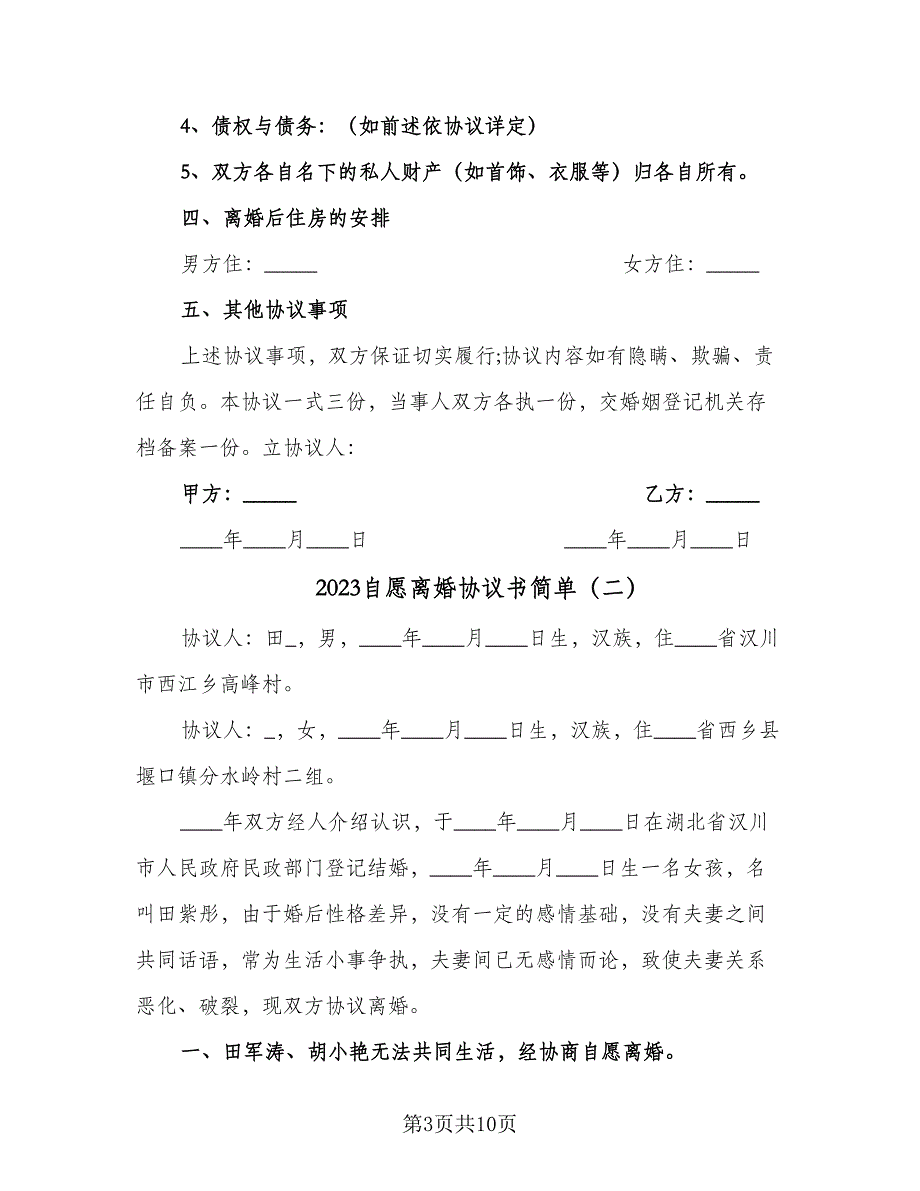 4、债权与债务：（如前述依协议详定）
5、双方各自名下的私人财产（如首饰、衣服等）归各自所有。
四、离婚后住房的安排
男方住：_____ 女方住：_____
五、其他协议事项
上述协议事项，双方保证切实履行;协议内容如有隐瞒、欺骗、责
任自负。本协议一式三份，当事人双方各执一份，交婚姻登记机关存
档备案一份。立协议人：
甲方：_____ 乙方：_____
____年____月____日 ____年____月____日
2023自愿离婚协议书简单（二）
协议人：田_，男，____年____月____日生，汉族，住____省汉川
市西江乡高峰村。
协议人：_，女，____年____月____日生，汉族，住____省西乡县
堰口镇分水岭村二组。
____年双方经人介绍认识，于____年____月____日在湖北省汉川
市人民政府民政部门登记结婚，____年____月____日生一名女孩，名
叫田紫彤，由于婚后性格差异，没有一定的感情基础，没有夫妻之间
共同话语，常为生活小事争执，夫妻间已无感情而论，致使夫妻关系
恶化、破裂，现双方协议离婚。
一、田军涛、胡小艳无法共同生活，经协商自愿离婚。
第3页共10页